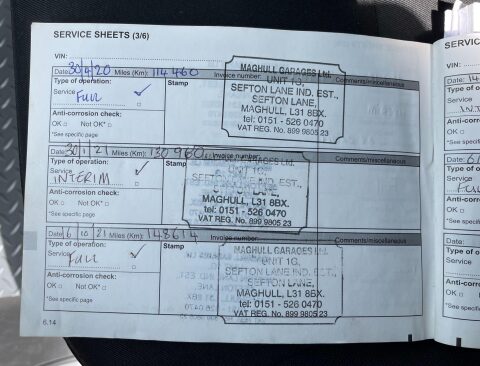 SERVICE SHEETS (3/6)
VIN:
Date: 30/4/20 Miles (Km): 114460 Invoice number: Comments/miscellaneous
Type of operation: Stamp
Service Full ✓
Anti-corrosion check:
OK □ Not OK* □
*See specific page
MAGHULL GARAGES Ltd.
UNIT 1G,
SEFTON LANE IND. EST.,
SEFTON LANE,
MAGHULL, L31 8BX.
tel: 0151 - 526 0470
VAT REG. No. 899 9805 23
Date: 30/1/21 Miles (Km): 130960 Invoice number: Comments/miscellaneous
Type of operation: Stamp
Service INTERIM ✓
Anti-corrosion check:
OK □ Not OK* □
*See specific page
MAGHULL, L31 8BX.
tel: 0151 - 526 0470
VAT REG. No. 899 9805 23
Date: 6/10/21 Miles (Km): 148614 Invoice number: Comments/miscellaneous
Type of operation: Stamp
Service Full ✓
Anti-corrosion check:
OK □ Not OK* □
*See specific page
MAGHULL GARAGES Ltd.
UNIT 1G,
SEFTON LANE IND. EST.,
SEFTON LANE,
MAGHULL, L31 8BX.
tel: 0151 - 526 0470
VAT REG. No. 899 9805 23
6.14
SERVIC
VIN:
Date:
Type of
Service
Anti-corr
OK □
*See spec
Date:
Type of
Service
Anti-corr
OK □
*See spec